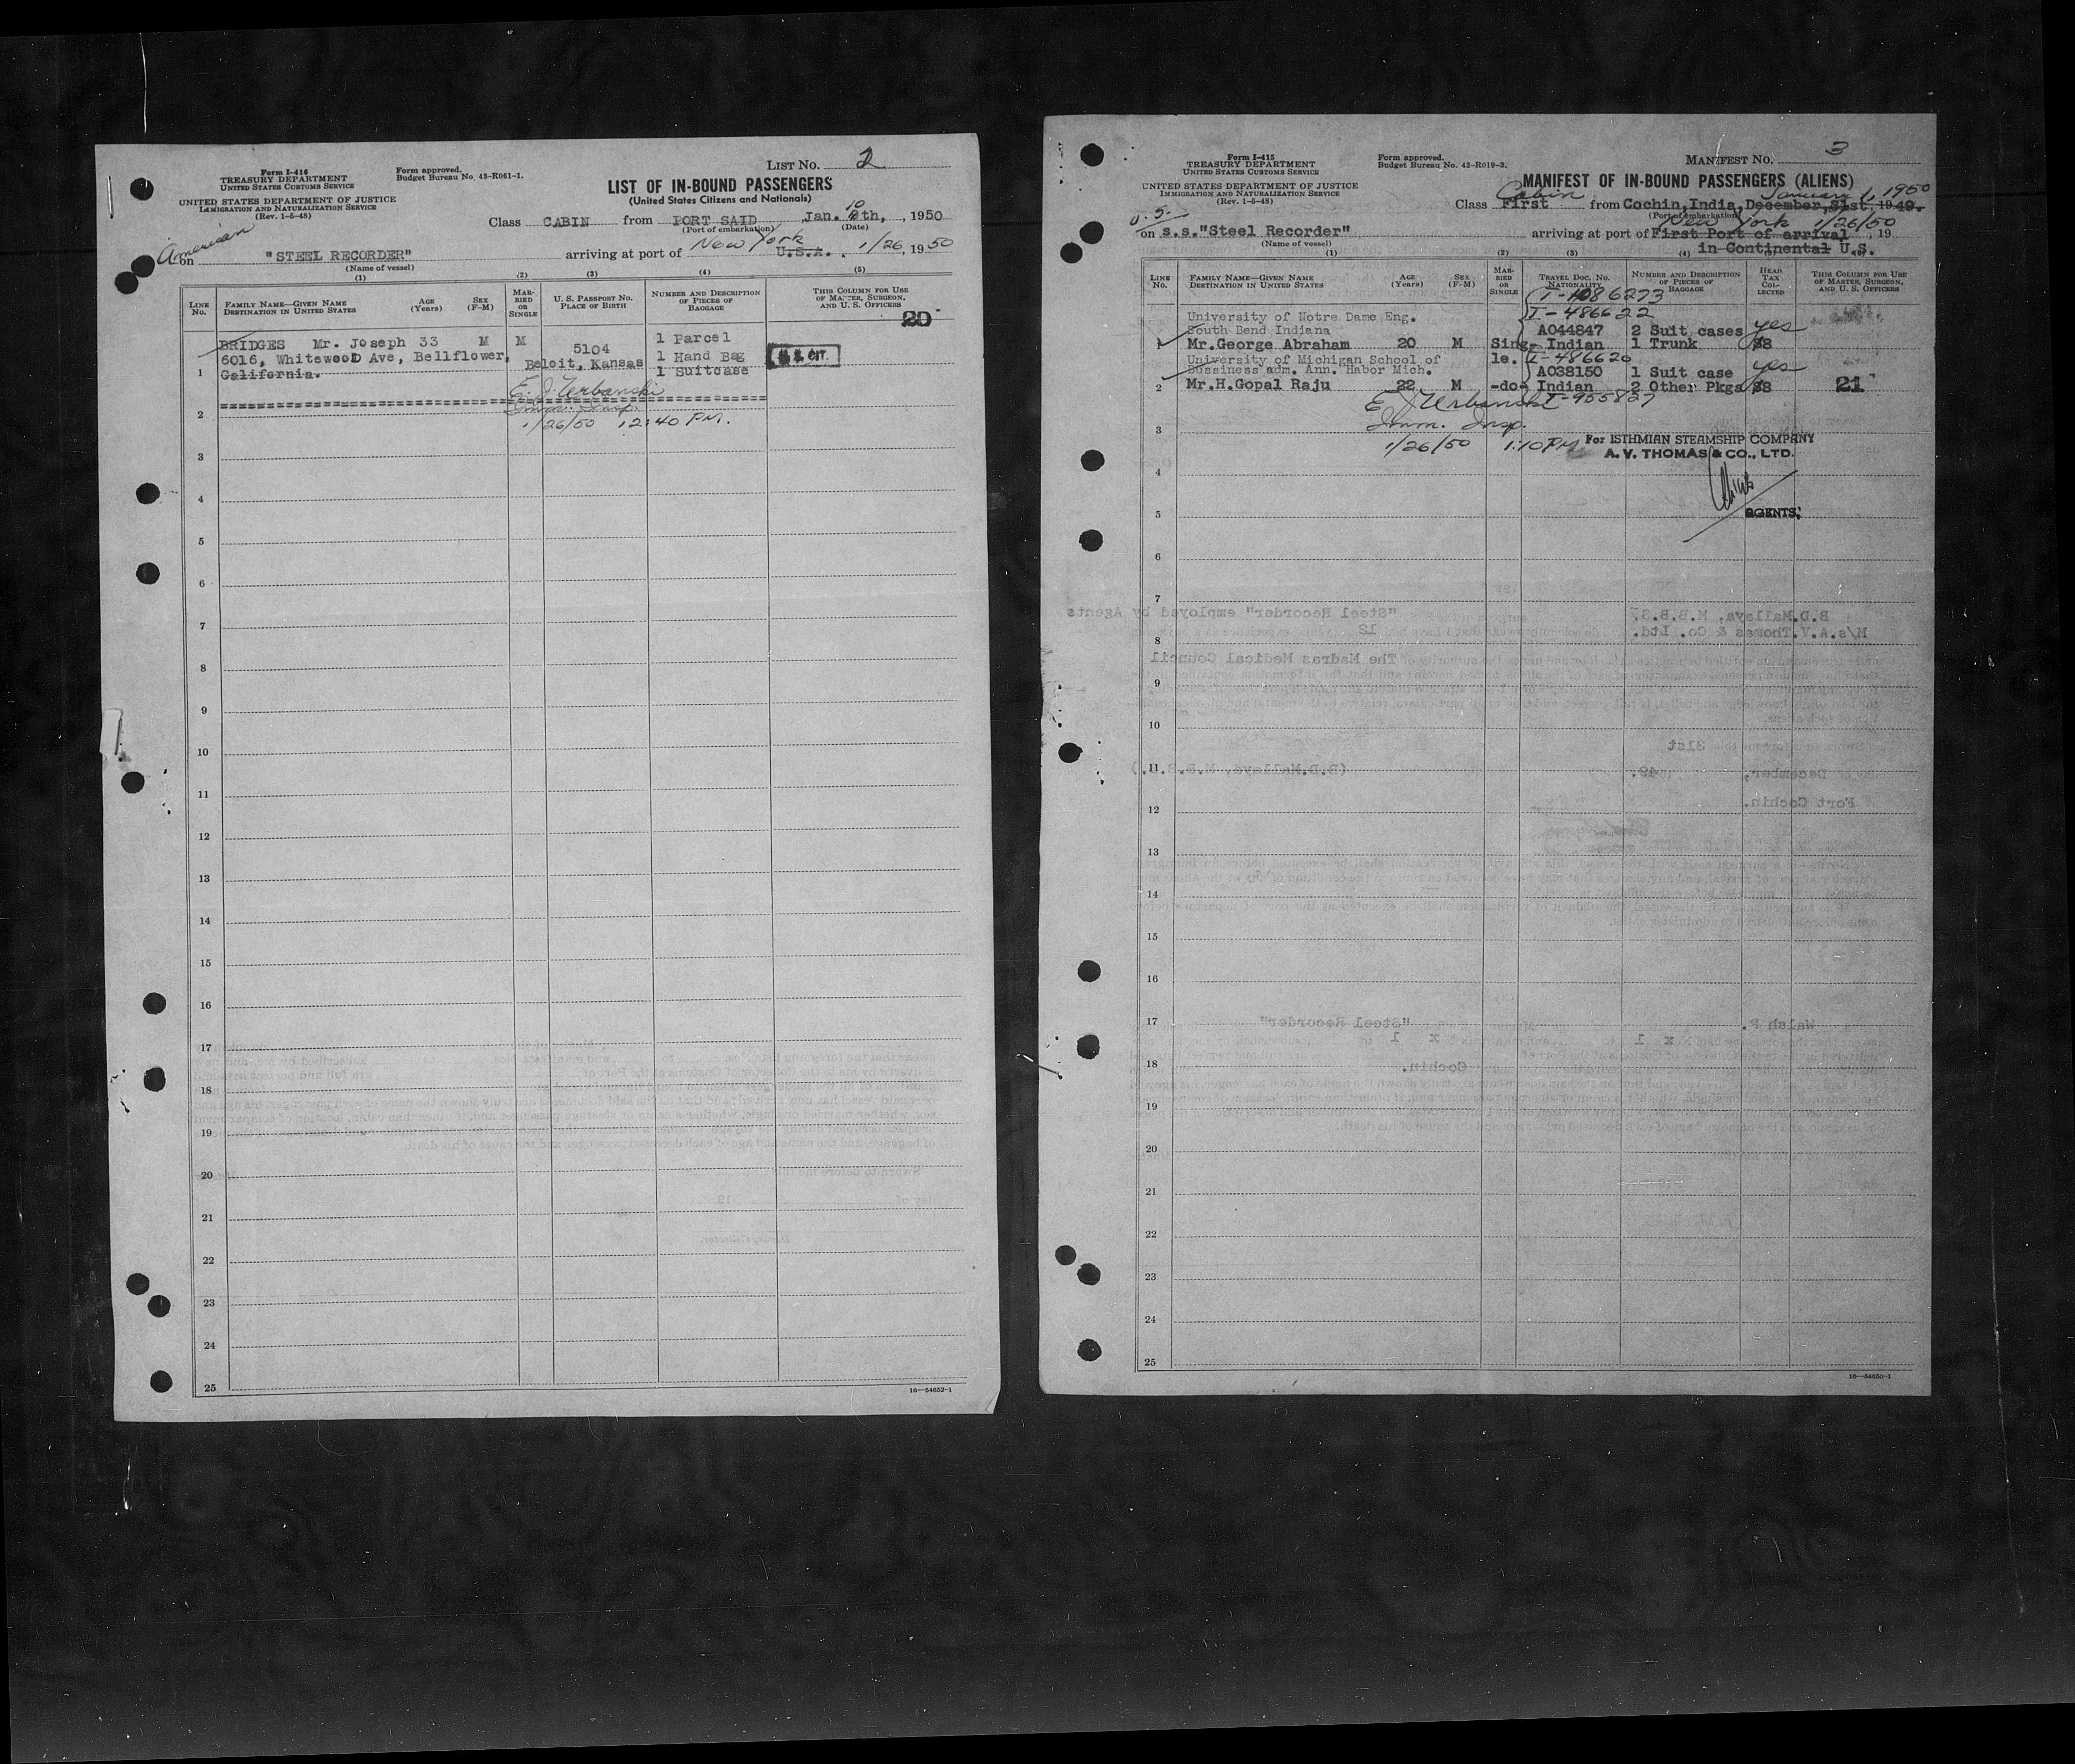 Form I-416
TREASURY DEPARTMENT
UNITED STATES CUSTOMS SERVICE
UNITED STATES DEPARTMENT OF JUSTICE
IMMIGRATION AND NATURALIZATION SERVICE
(Rev. 1-5-48)
Form approved.
Budget Bureau No. 43-R061-1.
LIST NO. 2
LIST OF IN-BOUND PASSENGERS
(United States Citizens and Nationals)
Class CABIN from PORT SAID, Jan. 10 th, 1950
(Port of embarkation) (Date)
American
on "STEEL RECORDER" arriving at port of New York U.S.A. 1/26, 1950
(Name of vessel)
(1) (2) (3) (4) (5)
LINE No.
FAMILY NAME—GIVEN NAME
DESTINATION IN UNITED STATES
AGE (Years)
SEX (F-M)
MARRIED OR SINGLE
U. S. PASSPORT NO.
PLACE OF BIRTH
NUMBER AND DESCRIPTION OF PIECES OF BAGGAGE
THIS COLUMN FOR USE OF MASTER, SURGEON, AND U. S. OFFICERS
20
BRIDGES Mr. Joseph 33 M M 5104 1 Parcel
6016, Whitewood Ave, Bellflower, Beloit, Kansas 1 Hand Bag
1 California. 1 Suitcase
U.S. CIT.
E. J. Urbanski
2 Imm. Insp.
1/26/50 12:40 PM.
3
4
5
6
7
8
9
10
11
12
13
14
15
16
17
18
19
20
21
22
23
24
25
16—54652-1
Form I-415
TREASURY DEPARTMENT
UNITED STATES CUSTOMS SERVICE
UNITED STATES DEPARTMENT OF JUSTICE
IMMIGRATION AND NATURALIZATION SERVICE
(Rev. 1-5-48)
Form approved.
Budget Bureau No. 43-R019-3.
MANIFEST NO. 3
MANIFEST OF IN-BOUND PASSENGERS (ALIENS)
Cabin January 1, 1950
Class First from Cochin, India, December, 31st. 1949.
(Port of embarkation)
U.S. New York 1/26/50
on s.s."Steel Recorder" arriving at port of First Port of arrival, 19
(Name of vessel) in Continental U.S.
(1) (2) (3) (4)
LINE No.
FAMILY NAME—GIVEN NAME
DESTINATION IN UNITED STATES
AGE (Years)
SEX (F-M)
MARRIED OR SINGLE
TRAVEL DOC. NO.
NATIONALITY
NUMBER AND DESCRIPTION OF PIECES OF BAGGAGE
HEAD TAX COLLECTED
THIS COLUMN FOR USE OF MASTER, SURGEON, AND U. S. OFFICERS
T-1086273
University of Notre Dame Eng. T-486622
South Bend Indiana A044847 2 Suit cases yes
1 Mr.George Abraham 20 M Sing- Indian 1 Trunk $8
University of Michigan School of le. T-486620
Bussiness adm. Ann. Habor Mich. A038150 1 Suit case yes
2 Mr.H.Gopal Raju 22 M -do- Indian 2 Other Pkgs $8 21
E J Urbanski T-955827
3 Imm. Insp.
1/26/50 1:10 PM
For ISTHMIAN STEAMSHIP COMPANY
A. V. THOMAS & CO., LTD.
AGENTS.
4
5
6
7
"Steel Recorder" employed by Agents
B.D.Mallaya, M.B.B.S.
M/s.A.V.Thomas & Co. Ltd.
12
8
The Madras Medical Council
9
10
31st
11
(B.D.Mallaya, M.B.B.S.)
December, 49.
Fort Cochin.
12
13
14
15
16
17
"Steel Recorder"
Walsh P.
x 1 x 1
Cochin.
18
19
20
21
22
23
24
25
16—54650-1